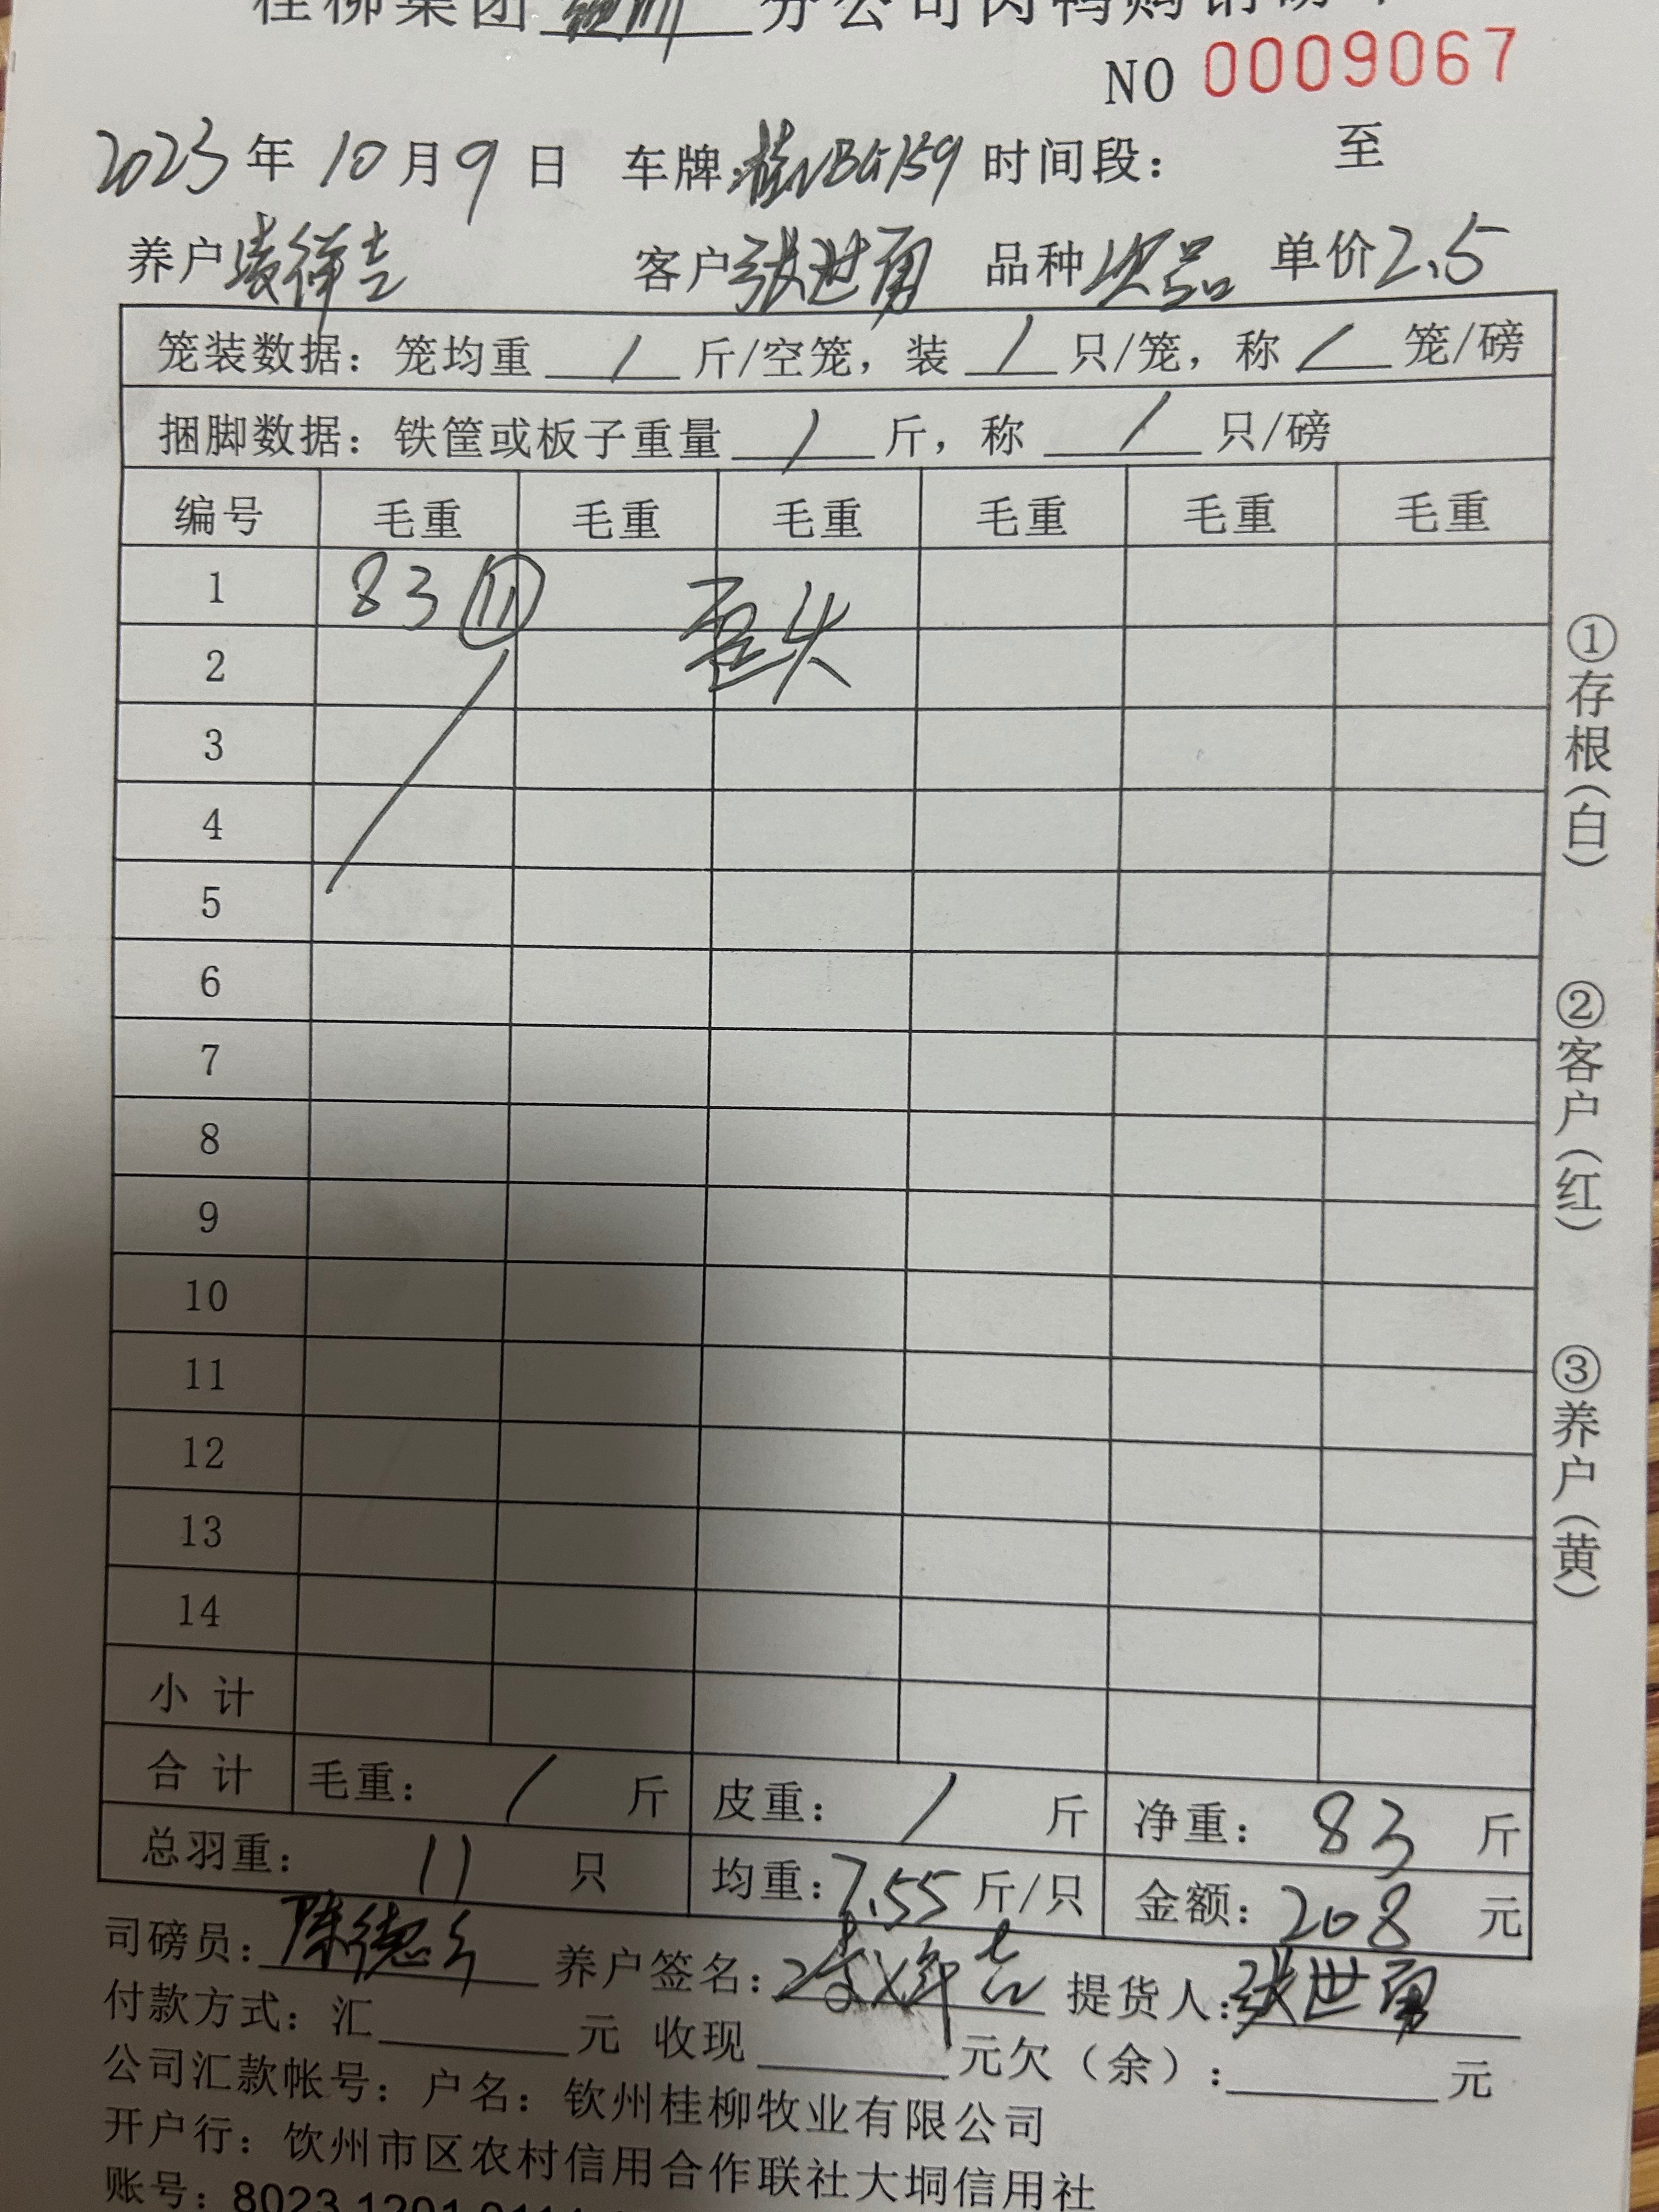 桂柳集团 分公司肉鸭购销磅单
NO 0009067
2023年10月9日 车牌:桂NBG159 时间段： 至
养户凌祥吉 客户张世勇 品种次品 单价2.5
笼装数据：笼均重 / 斤/空笼，装 / 只/笼，称 / 笼/磅
捆脚数据：铁筐或板子重量 / 斤，称 / 只/磅
编号 毛重 毛重 毛重 毛重 毛重 毛重
1 83 ⑪ 歪头
2
3
4
5
6
7
8
9
10
11
12
13
14
小计
合计 毛重： / 斤 皮重： / 斤 净重： 83 斤
总羽重： 11 只 均重：7.55斤/只 金额：208 元
司磅员： 养户签名：凌祥吉 提货人：张世勇
付款方式：汇 元 收现 元欠（余）： 元
公司汇款帐号：户名：钦州桂柳牧业有限公司
开户行：饮州市区农村信用合作联社大垌信用社
账号：8023 1201 0111
①存根（白）
②客户（红）
③养户（黄）